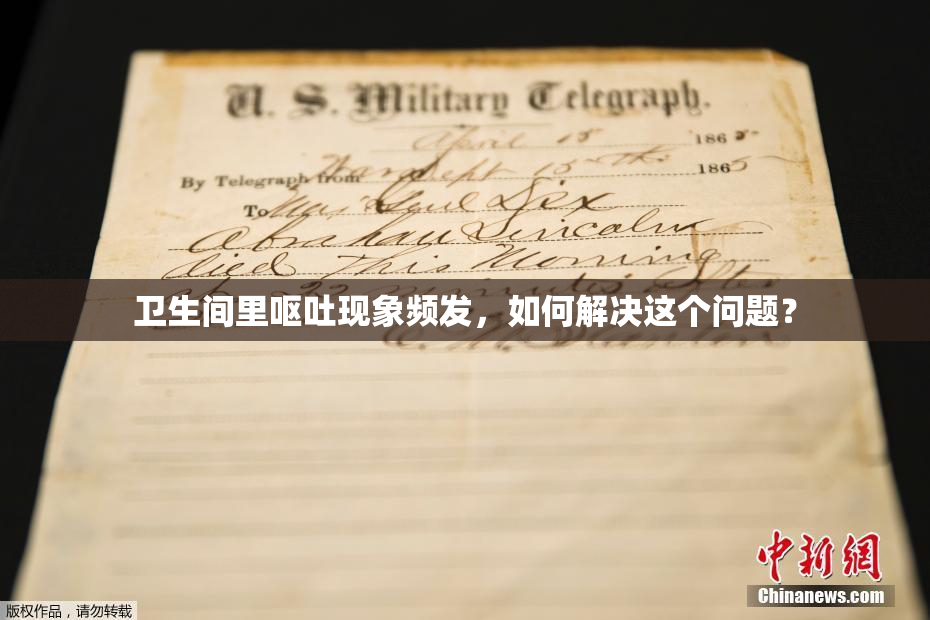 U. S. Military Telegraph.
April 15 1865
By Telegraph from War Dept 15th 1865
To Maj Genl Dix
Abraham Lincoln
died This Morning
at 22 minutes after
卫生间里呕吐现象频发，如何解决这个问题？
E. M. Stanton
中新網
Chinanews.com
版权作品，请勿转载